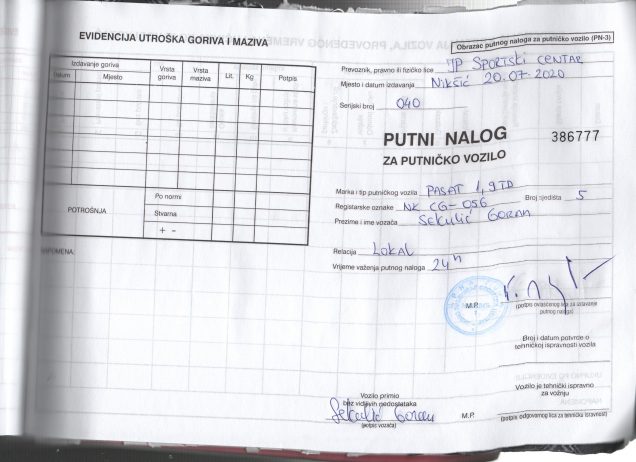 EVIDENCIJA UTROŠKA GORIVA I MAZIVA
Izdavanje goriva
Datum Mjesto Vrsta goriva Vrsta maziva Lit. Kg Potpis
POTROŠNJA
Po normi
Stvarna
+ -
NAPOMENA:
Obrazac putnog naloga za putničko vozilo (PN-3)
Prevoznik, pravno ili fizičko lice JP SPORTSKI CENTAR
Mjesto i datum izdavanja Nikšić 20.07.2020
Serijski broj 040
PUTNI NALOG 386777
ZA PUTNIČKO VOZILO
Marka i tip putničkog vozila PASAT 1,9TD Broj sjedišta 5
Registarske oznake NK CG-056
Prezime i ime vozača Sekulić Goran
Relacija LOKAL
Vrijeme važenja putnog naloga 24h
M.P.
(potpis ovlašćenog lica za izdavanje
putnog naloga)
Broj i datum potvrde o
tehničkoj ispravnosti vozila
Vozilo primio
bez vidljivih nedostataka
Sekulić Goran
(potpis vozača)
Vozilo je tehnički ispravno
za vožnju
M.P.
(potpis odgovornog lica za tehničku ispravnost)